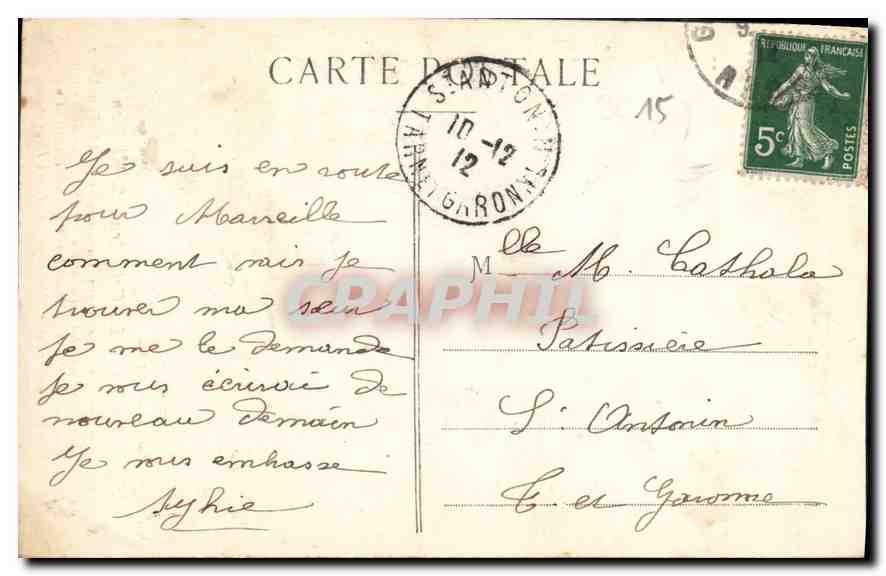 CARTE POSTALE
ST ANTONIN
10-12
12
TARN ET GARONNE
15
RÉPUBLIQUE FRANÇAISE
5c
POSTES
Je suis en route
pour Marseille
comment vais je
trouver ma sœur
Je me le demande
Je vous écrirai de
nouveau demain
Je vous embrasse
Mlle M. Cathala
Patissière
St Antonin
T. et Garonne
CPAPHIL